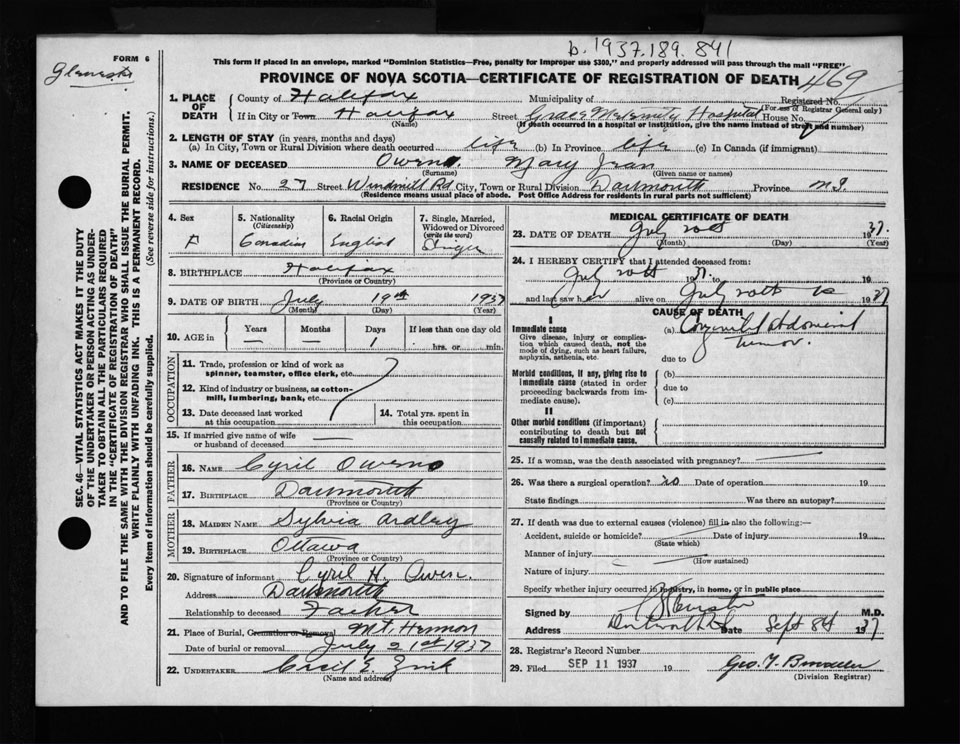 b. 1937.189.841
FORM 6
This form if placed in an envelope, marked "Dominion Statistics—Free, penalty for improper use $300," and properly addressed will pass through the mail "FREE"
PROVINCE OF NOVA SCOTIA—CERTIFICATE OF REGISTRATION OF DEATH
469
Registered No.
(For use of Registrar General only)
1. PLACE OF DEATH
County of Halifax Municipality of
If in City or Town Halifax Street Grace Maternity Hospital House No.
(Name) (If death occurred in a hospital or institution, give the name instead of street and number)
2. LENGTH OF STAY (in years, months and days)
(a) In City, Town or Rural Division where death occurred life (b) In Province life (c) In Canada (if immigrant)
3. NAME OF DECEASED Owens Mary Jean
(Surname) (Given name or names)
RESIDENCE No. 27 Street Windmill Rd City, Town or Rural Division Dartmouth Province N.S.
(Residence means usual place of abode. Post Office Address for residents in rural parts not sufficient)
4. Sex F
5. Nationality (Citizenship) Canadian
6. Racial Origin English
7. Single, Married, Widowed or Divorced (write the word) Single
8. BIRTHPLACE Halifax
(Province or County)
9. DATE OF BIRTH July 19th 1937
(Month) (Day) (Year)
10. AGE in Years — Months — Days 1 If less than one day old hrs. or min.
OCCUPATION
11. Trade, profession or kind of work as spinner, teamster, office clerk, etc.
12. Kind of industry or business, as cotton-mill, lumbering, bank, etc.
13. Date deceased last worked at this occupation
14. Total yrs. spent in this occupation
15. If married give name of wife or husband of deceased
FATHER
16. NAME Cyril Owens
17. BIRTHPLACE Dartmouth
(Province or County)
MOTHER
18. MAIDEN NAME Sylvia Ardley
19. BIRTHPLACE Ottawa
(Province or Country)
20. Signature of informant Cyril H. Owen.
Address Dartmouth
Relationship to deceased Father
21. Place of Burial, Cremation or Removal Mt. Hermon
Date of burial or removal July 21st 1937
22. UNDERTAKER Cecil E. Zink
(Name and address)
MEDICAL CERTIFICATE OF DEATH
23. DATE OF DEATH July 20th 1937.
(Month) (Day) (Year)
24. I HEREBY CERTIFY that I attended deceased from
July 20th 37. to 19
and last saw her alive on July 20th 1937
CAUSE OF DEATH
I
Immediate cause
Give disease, injury or complication which caused death, not the mode of dying, such as heart failure, asphyxia, asthenia, etc.
(a) Congenital Abdominal Tumor.
due to
Morbid conditions, if any, giving rise to immediate cause (stated in order proceeding backwards from immediate cause).
(b)
due to
(c)
II
Other morbid conditions (if important) contributing to death but not causally related to immediate cause.
25. If a woman, was the death associated with pregnancy?
26. Was there a surgical operation? no Date of operation 19
State findings Was there an autopsy?
27. If death was due to external causes (violence) fill in also the following:—
Accident, suicide or homicide? Date of injury 19
(State which)
Manner of injury
(How sustained)
Nature of injury
Specify whether injury occurred in industry, in home, or in public place
Signed by M.D.
Address Date Sept 8th 1937
28. Registrar's Record Number
29. Filed SEP 11 1937 19
(Division Registrar)
SEC. 46—VITAL STATISTICS ACT MAKES IT THE DUTY
OF THE UNDERTAKER OR PERSON ACTING AS UNDER-
TAKER TO OBTAIN ALL THE PARTICULARS REQUIRED
IN THE "CERTIFICATE OF REGISTRATION OF DEATH"
AND TO FILE THE SAME WITH THE DIVISION REGISTRAR WHO SHALL ISSUE THE BURIAL PERMIT.
WRITE PLAINLY WITH UNFADING INK. THIS IS A PERMANENT RECORD.
Every item of information should be carefully supplied. (See reverse side for instructions.)